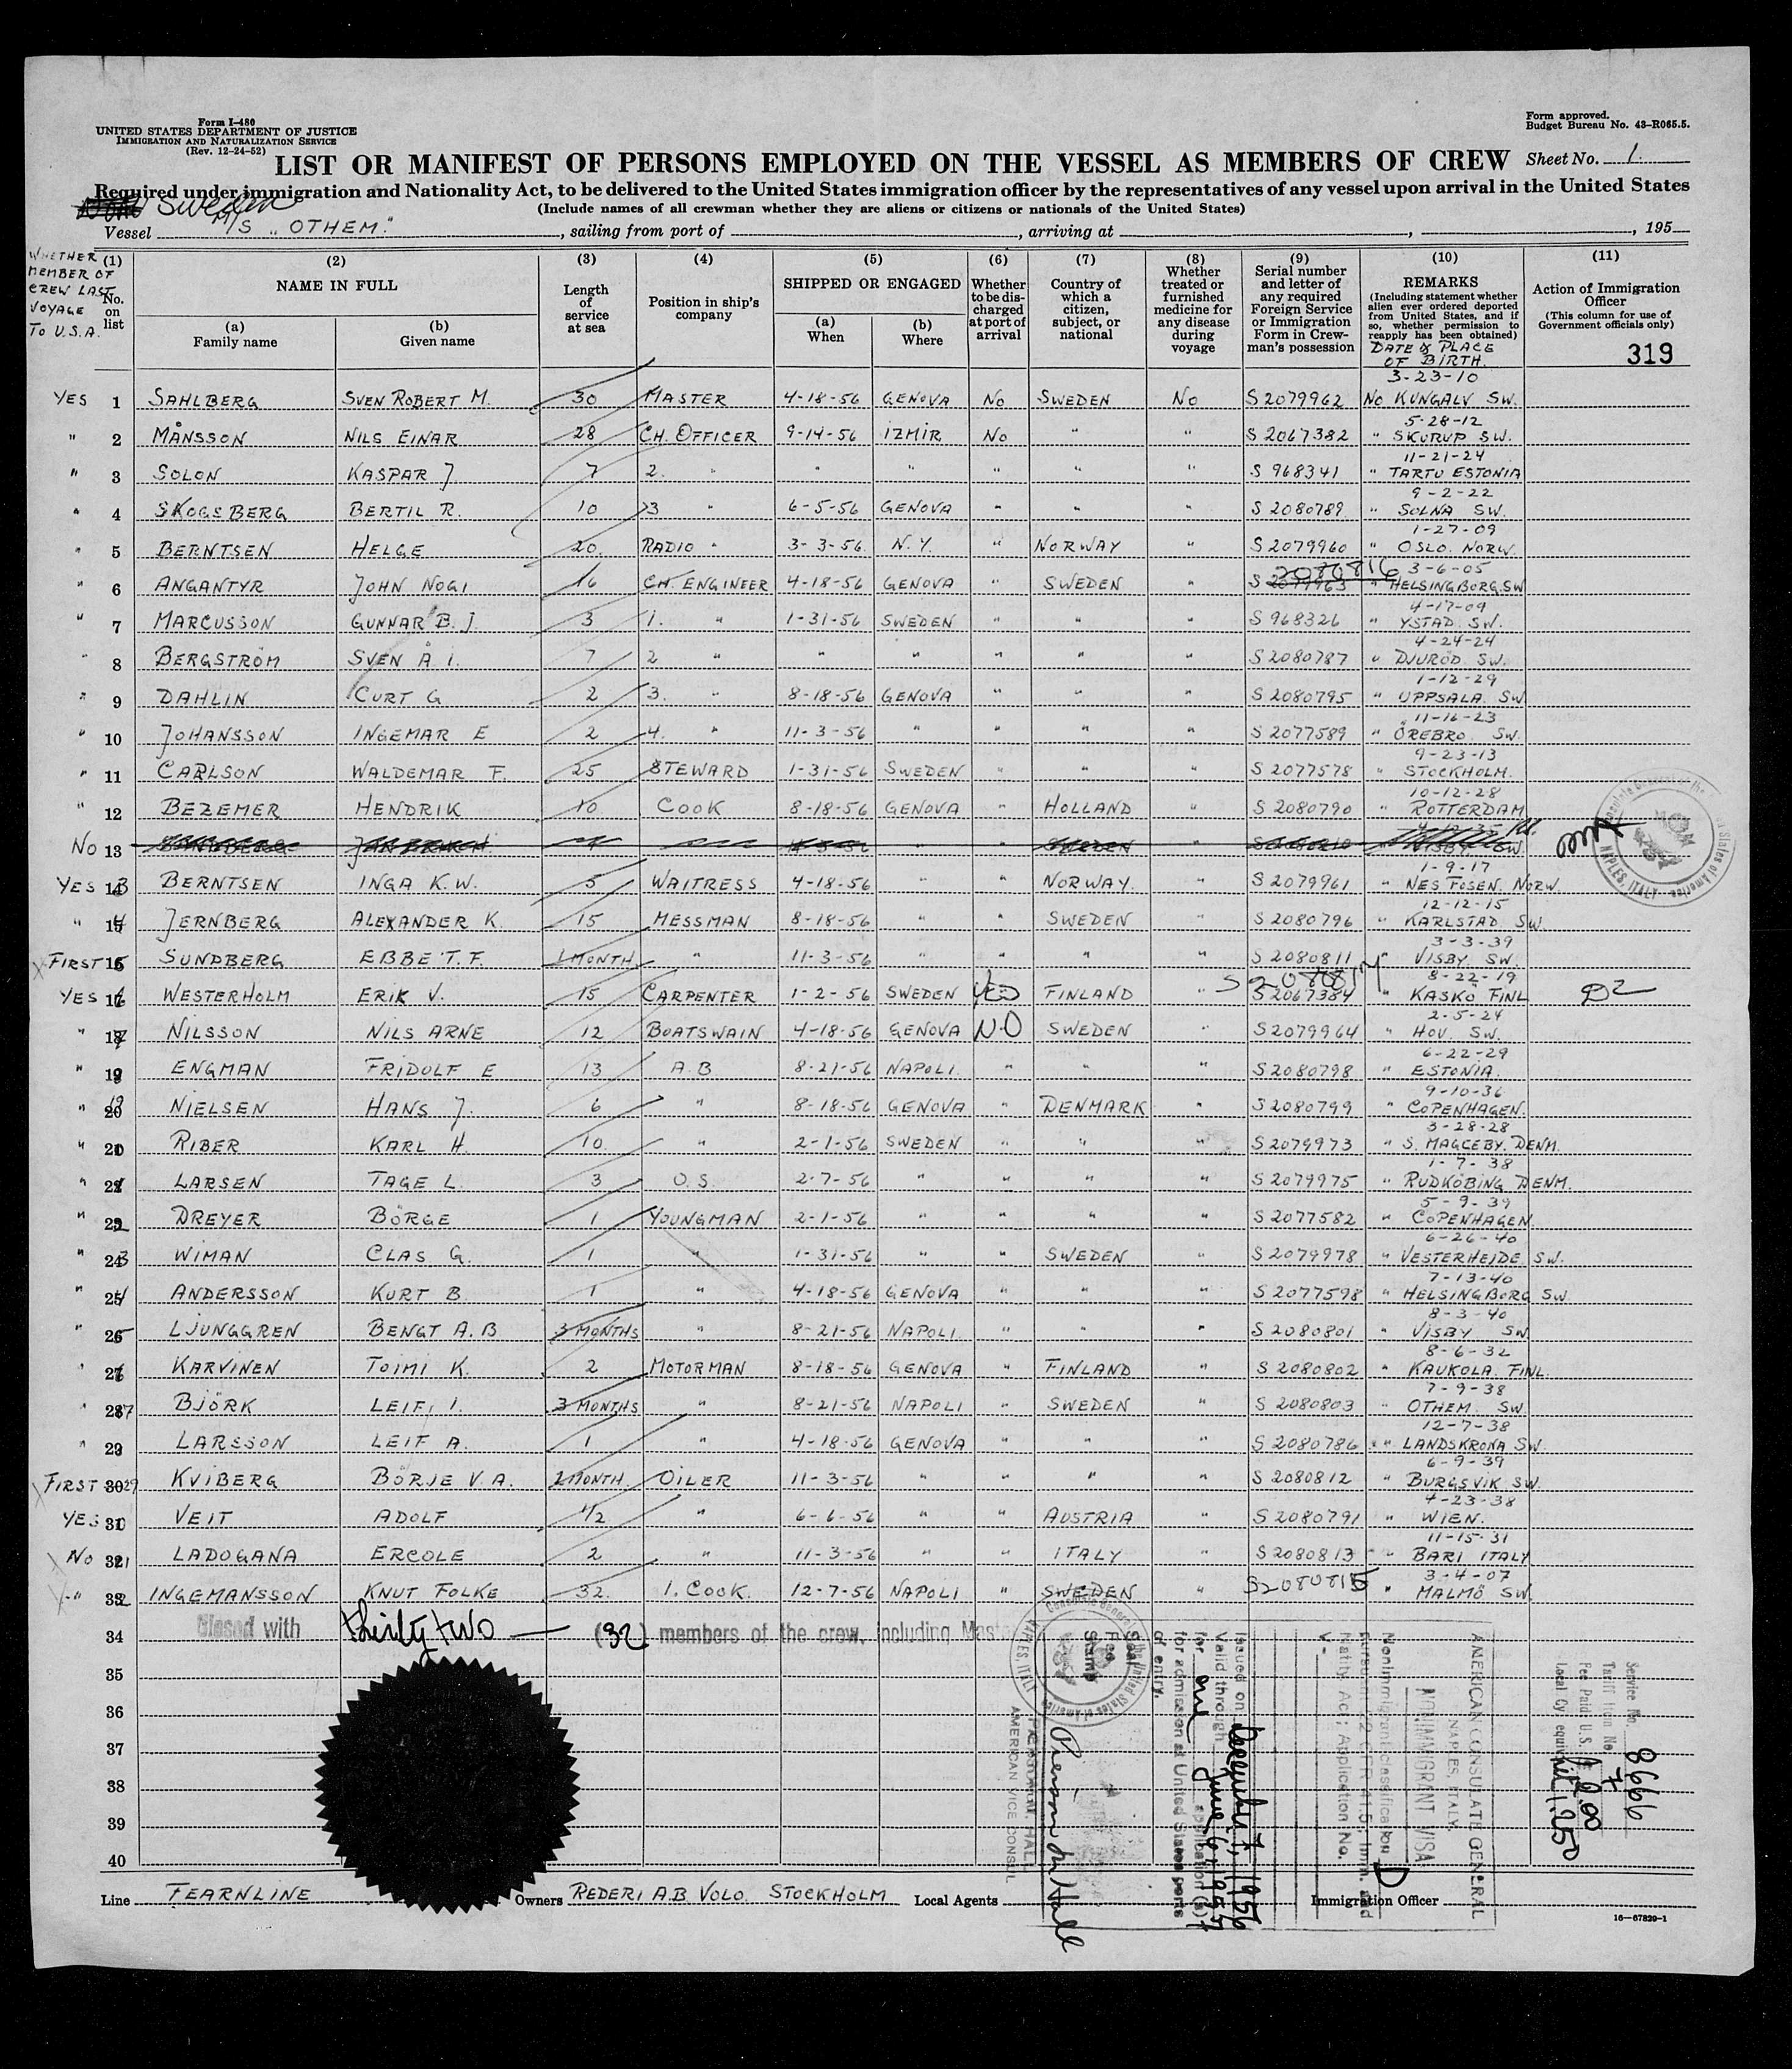 Form I-480
UNITED STATES DEPARTMENT OF JUSTICE
IMMIGRATION AND NATURALIZATION SERVICE
(Rev. 12-24-52)
Form approved.
Budget Bureau No. 43-R065.5.
LIST OR MANIFEST OF PERSONS EMPLOYED ON THE VESSEL AS MEMBERS OF CREW Sheet No. 1.
Required under immigration and Nationality Act, to be delivered to the United States immigration officer by the representatives of any vessel upon arrival in the United States
(Include names of all crewman whether they are aliens or citizens or nationals of the United States)
Sweden
Vessel M/S "OTHEM", sailing from port of , arriving at , , 195
WHETHER MEMBER OF CREW LAST VOYAGE TO U.S.A.
(1) No. on list
(2) NAME IN FULL (a) Family name (b) Given name
(3) Length of service at sea
(4) Position in ship's company
(5) SHIPPED OR ENGAGED (a) When (b) Where
(6) Whether to be discharged at port of arrival
(7) Country of which a citizen, subject, or national
(8) Whether treated or furnished medicine for any disease during voyage
(9) Serial number and letter of any required Foreign Service or Immigration Form in Crewman's possession
(10) REMARKS (Including statement whether alien ever ordered deported from United States, and if so, whether permission to reapply has been obtained) DATE & PLACE OF BIRTH.
(11) Action of Immigration Officer (This column for use of Government officials only)
319
YES 1 SAHLBERG SVEN ROBERT M. 30 MASTER 4-18-56 GENOVA No SWEDEN No S 2079962 3-23-10 No KUNGALV SW.
" 2 MÅNSSON NILS EINAR 28 CH. OFFICER 9-14-56 IZMIR No " " S 2067382 5-28-12 " SKURUP SW.
" 3 SOLON KASPAR J 7 2. " " " " " " S 968341 11-21-24 " TARTU ESTONIA
" 4 SKOGSBERG BERTIL R. 10 3 " 6-5-56 GENOVA " " " S 2080789 9-2-22 " SOLNA SW.
" 5 BERNTSEN HELGE 20 RADIO " 3-3-56 N.Y. " NORWAY " S 2079960 1-27-09 " OSLO. NORW.
" 6 ANGANTYR JOHN NOGI 16 CH. ENGINEER 4-18-56 GENOVA " SWEDEN " S 2079963 2080816 3-6-05 " HELSINGBORG.SW
" 7 MARCUSSON GUNNAR B.J. 3 1. " 1-31-56 SWEDEN " " " S 968326 4-17-09 " YSTAD. SW.
" 8 BERGSTRÖM SVEN Å. I. 7 2 " " " " " " S 2080787 4-24-24 " DJURÖD. SW.
" 9 DAHLIN CURT G 2 3. " 8-18-56 GENOVA " " " S 2080795 1-12-29 " UPPSALA. SW
" 10 JOHANSSON INGEMAR E 2 4. " 11-3-56 " " " " S 2077589 11-16-23 " ÖREBRO. SW.
" 11 CARLSON WALDEMAR F. 25 STEWARD 1-31-56 SWEDEN " " " S 2077578 9-23-13 " STOCKHOLM.
" 12 BEZEMER HENDRIK 10 COOK 8-18-56 GENOVA " HOLLAND " S 2080790 10-12-28 " ROTTERDAM
No 13
YES 13 BERNTSEN INGA K.W. 5 WAITRESS 4-18-56 " " NORWAY. " S 2079961 1-9-17 " NES FOSEN. NORW.
" 14 JERNBERG ALEXANDER K. 15 MESSMAN 8-18-56 " " SWEDEN " S 2080796 12-12-15 " KARLSTAD. SW.
X FIRST 15 SUNDBERG EBBE T.F. 1 MONTH " 11-3-56 " " " " S 2080811 3-3-39 " VISBY. SW.
YES 16 WESTERHOLM ERIK V. 15 CARPENTER 1-2-56 SWEDEN YES FINLAND " S 2067384 S2080817 8-22-19 " KASKÖ FINL D2
" 17 NILSSON NILS ARNE 12 BOATSWAIN 4-18-56 GENOVA NO SWEDEN " S2079964 2-5-24 " HOV. SW.
" 18 ENGMAN FRIDOLF E 13 A.B 8-21-56 NAPOLI. " " " S2080798 6-22-29 " ESTONIA.
" 19 NIELSEN HANS J. 6 " 8-18-56 GENOVA " DENMARK " S2080799 9-10-36 " COPENHAGEN.
" 20 RIBER KARL H. 10 " 2-1-56 SWEDEN " " " S2079973 3-28-28 " S. MAGLEBY. DENM.
" 21 LARSEN TAGE L. 3 O.S. 2-7-56 " " " " S2079975 1-7-38 " RUDKÖBING DENM.
" 22 DREYER BÖRGE 1 YOUNGMAN 2-1-56 " " " " S 2077582 5-9-39 " COPENHAGEN
" 23 WIMAN CLAS G. 1 " 1-31-56 " " SWEDEN " S 2079978 6-26-40 " VESTERHEJDE SW.
" 24 ANDERSSON KURT B 1 " 4-18-56 GENOVA " " " S 2077598 7-13-40 " HELSINGBORG SW
" 25 LJUNGGREN BENGT A.B 3 MONTHS " 8-21-56 NAPOLI. " " " S 2080801 8-3-40 " VISBY SW
" 26 KARVINEN TOIMI K. 2 MOTORMAN 8-18-56 GENOVA " FINLAND " S 2080802 8-6-32 " KAUKOLA. FINL.
" 27 BJÖRK LEIF. I. 3 MONTHS " 8-21-56 NAPOLI " SWEDEN " S 2080803 7-9-38 " OTHEM. SW.
" 28 LARSSON LEIF A. 1 " 4-18-56 GENOVA " " " S 2080786 12-7-38 " LANDSKRONA SW.
X FIRST 29 KVIBERG BÖRJE V.A. 2 MONTH. OILER 11-3-56 " " " " S 2080812 6-9-39 " BURGSVIK. SW.
YES 30 VEIT ADOLF 1/2 " 6-6-56 " " AUSTRIA " S 2080791 4-23-38 " WIEN.
X No 31 LADOGANA ERCOLE 2 " 11-3-56 " " ITALY " S2080813 11-15-31 " BARI ITALY
X " 32 INGEMANSSON KNUT FOLKE 32. 1. COOK. 12-7-56 NAPOLI " SWEDEN " S2080815 3-4-07 " MALMÖ SW.
34 Closed with thirty two — (32) members of the crew, including Master
35
36
37
38
39
40
Consulate General of the United States of America NAPLES, ITALY
Seal
Fee
Stamp
Pierson M Hall
PIERSON M. HALL
AMERICAN VICE CONSUL
AMERICAN CONSULATE GENERAL
NAPLES, ITALY
NONIMMIGRANT VISA
Nonimmigrant classification D
22 CFR 41.5; Imm. and
Natity Act; Application No.
V-
Issued on December 7, 1956
Valid through June 6, 1957
for one application(s)
for admission at United States ports
of entry.
Service No. 8666
Tariff Item No. 7
Fee Paid U.S. $ 2.00
Local Cy equiv Lit 1,250
Line FEARNLINE Owners REDERI A.B VOLO. STOCKHOLM Local Agents Immigration Officer
16—67829-1